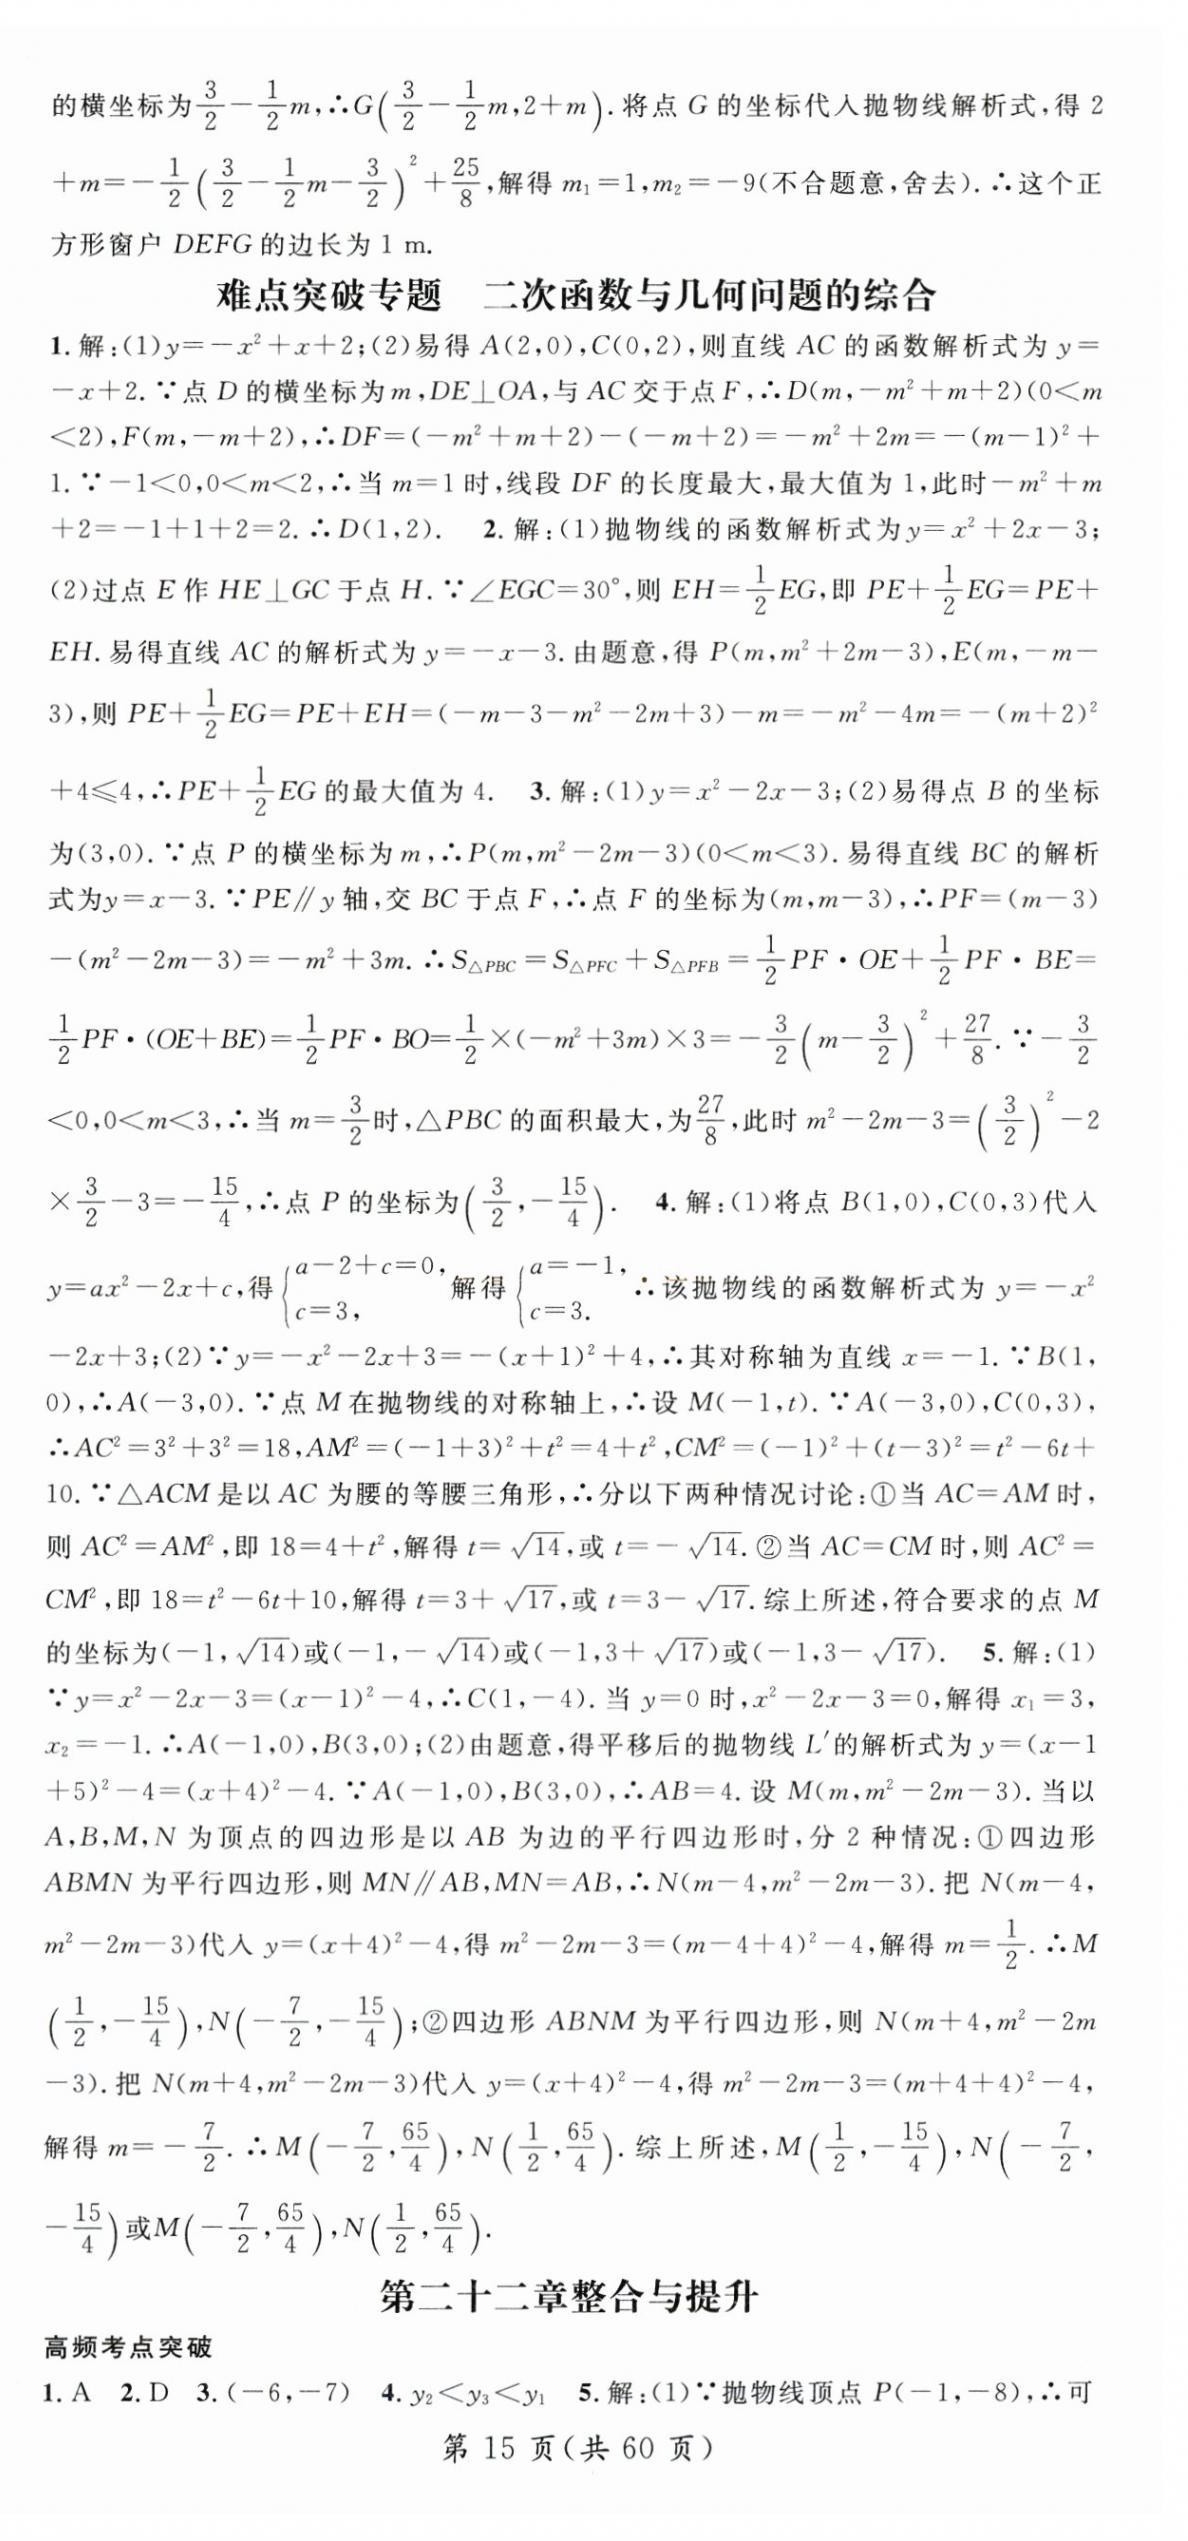 的横坐标为3/2－1/2m,∴G(3/2－1/2m,2＋m).将点 G 的坐标代入抛物线解析式,得 2
＋m＝－1/2(3/2－1/2m－3/2)²＋25/8,解得 m₁＝1,m₂＝－9(不合题意,舍去).∴这个正
方形窗户 DEFG 的边长为 1 m.
难点突破专题　二次函数与几何问题的综合
1.解:(1)y＝－x²＋x＋2;(2)易得 A(2,0),C(0,2),则直线 AC 的函数解析式为 y＝
－x＋2.∵点 D 的横坐标为 m,DE⊥OA,与 AC 交于点 F,∴D(m,－m²＋m＋2)(0＜m
＜2),F(m,－m＋2),∴DF＝(－m²＋m＋2)－(－m＋2)＝－m²＋2m＝－(m－1)²＋
1.∵－1＜0,0＜m＜2,∴当 m＝1 时,线段 DF 的长度最大,最大值为 1,此时－m²＋m
＋2＝－1＋1＋2＝2.∴D(1,2).　2.解:(1)抛物线的函数解析式为y＝x²＋2x－3;
(2)过点 E 作 HE⊥GC 于点 H.∵∠EGC＝30°,则 EH＝1/2EG,即 PE＋1/2EG＝PE＋
EH.易得直线 AC 的解析式为 y＝－x－3.由题意,得 P(m,m²＋2m－3),E(m,－m－
3),则 PE＋1/2EG＝PE＋EH＝(－m－3－m²－2m＋3)－m＝－m²－4m＝－(m＋2)²
＋4≤4,∴PE＋1/2EG 的最大值为 4.　3.解:(1)y＝x²－2x－3;(2)易得点 B 的坐标
为(3,0).∵点 P 的横坐标为 m,∴P(m,m²－2m－3)(0＜m＜3).易得直线 BC 的解析
式为y＝x－3.∵PE∥y 轴,交 BC 于点 F,∴点 F 的坐标为(m,m－3),∴PF＝(m－3)
－(m²－2m－3)＝－m²＋3m.∴S△PBC＝S△PFC＋S△PFB＝1/2PF·OE＋1/2PF·BE＝
1/2PF·(OE＋BE)＝1/2PF·BO＝1/2×(－m²＋3m)×3＝－3/2(m－3/2)²＋27/8.∵－3/2
＜0,0＜m＜3,∴当 m＝3/2时,△PBC 的面积最大,为27/8,此时 m²－2m－3＝(3/2)²－2
×3/2－3＝－15/4,∴点 P 的坐标为(3/2,－15/4).　4.解:(1)将点 B(1,0),C(0,3)代入
y＝ax²－2x＋c,得{a－2＋c＝0,c＝3,解得{a＝－1,c＝3.∴该抛物线的函数解析式为 y＝－x²
－2x＋3;(2)∵y＝－x²－2x＋3＝－(x＋1)²＋4,∴其对称轴为直线 x＝－1.∵B(1,
0),∴A(－3,0).∵点 M 在抛物线的对称轴上,∴设 M(－1,t).∵A(－3,0),C(0,3),
∴AC²＝3²＋3²＝18,AM²＝(－1＋3)²＋t²＝4＋t²,CM²＝(－1)²＋(t－3)²＝t²－6t＋
10.∵△ACM 是以 AC 为腰的等腰三角形,∴分以下两种情况讨论:①当 AC＝AM 时,
则 AC²＝AM²,即 18＝4＋t²,解得 t＝√14,或 t＝－√14.②当 AC＝CM 时,则 AC²＝
CM²,即 18＝t²－6t＋10,解得 t＝3＋√17,或 t＝3－√17.综上所述,符合要求的点 M
的坐标为(－1,√14)或(－1,－√14)或(－1,3＋√17)或(－1,3－√17).　5.解:(1)
∵y＝x²－2x－3＝(x－1)²－4,∴C(1,－4).当 y＝0 时,x²－2x－3＝0,解得 x₁＝3,
x₂＝－1.∴A(－1,0),B(3,0);(2)由题意,得平移后的抛物线 L′的解析式为 y＝(x－1
＋5)²－4＝(x＋4)²－4.∵A(－1,0),B(3,0),∴AB＝4.设 M(m,m²－2m－3).当以
A,B,M,N 为顶点的四边形是以 AB 为边的平行四边形时,分 2 种情况:①四边形
ABMN 为平行四边形,则 MN∥AB,MN＝AB,∴N(m－4,m²－2m－3).把 N(m－4,
m²－2m－3)代入 y＝(x＋4)²－4,得 m²－2m－3＝(m－4＋4)²－4,解得 m＝1/2.∴M
(1/2,－15/4),N(－7/2,－15/4);②四边形 ABNM 为平行四边形,则 N(m＋4,m²－2m
－3).把 N(m＋4,m²－2m－3)代入 y＝(x＋4)²－4,得 m²－2m－3＝(m＋4＋4)²－4,
解得 m＝－7/2.∴M(－7/2,65/4),N(1/2,65/4).综上所述,M(1/2,－15/4),N(－7/2,
－15/4)或M(－7/2,65/4),N(1/2,65/4).
第二十二章整合与提升
高频考点突破
1.A　2.D　3.(－6,－7)　4.y₂＜y₃＜y₁　5.解:(1)∵抛物线顶点 P(－1,－8),∴可
第 15 页(共 60 页)